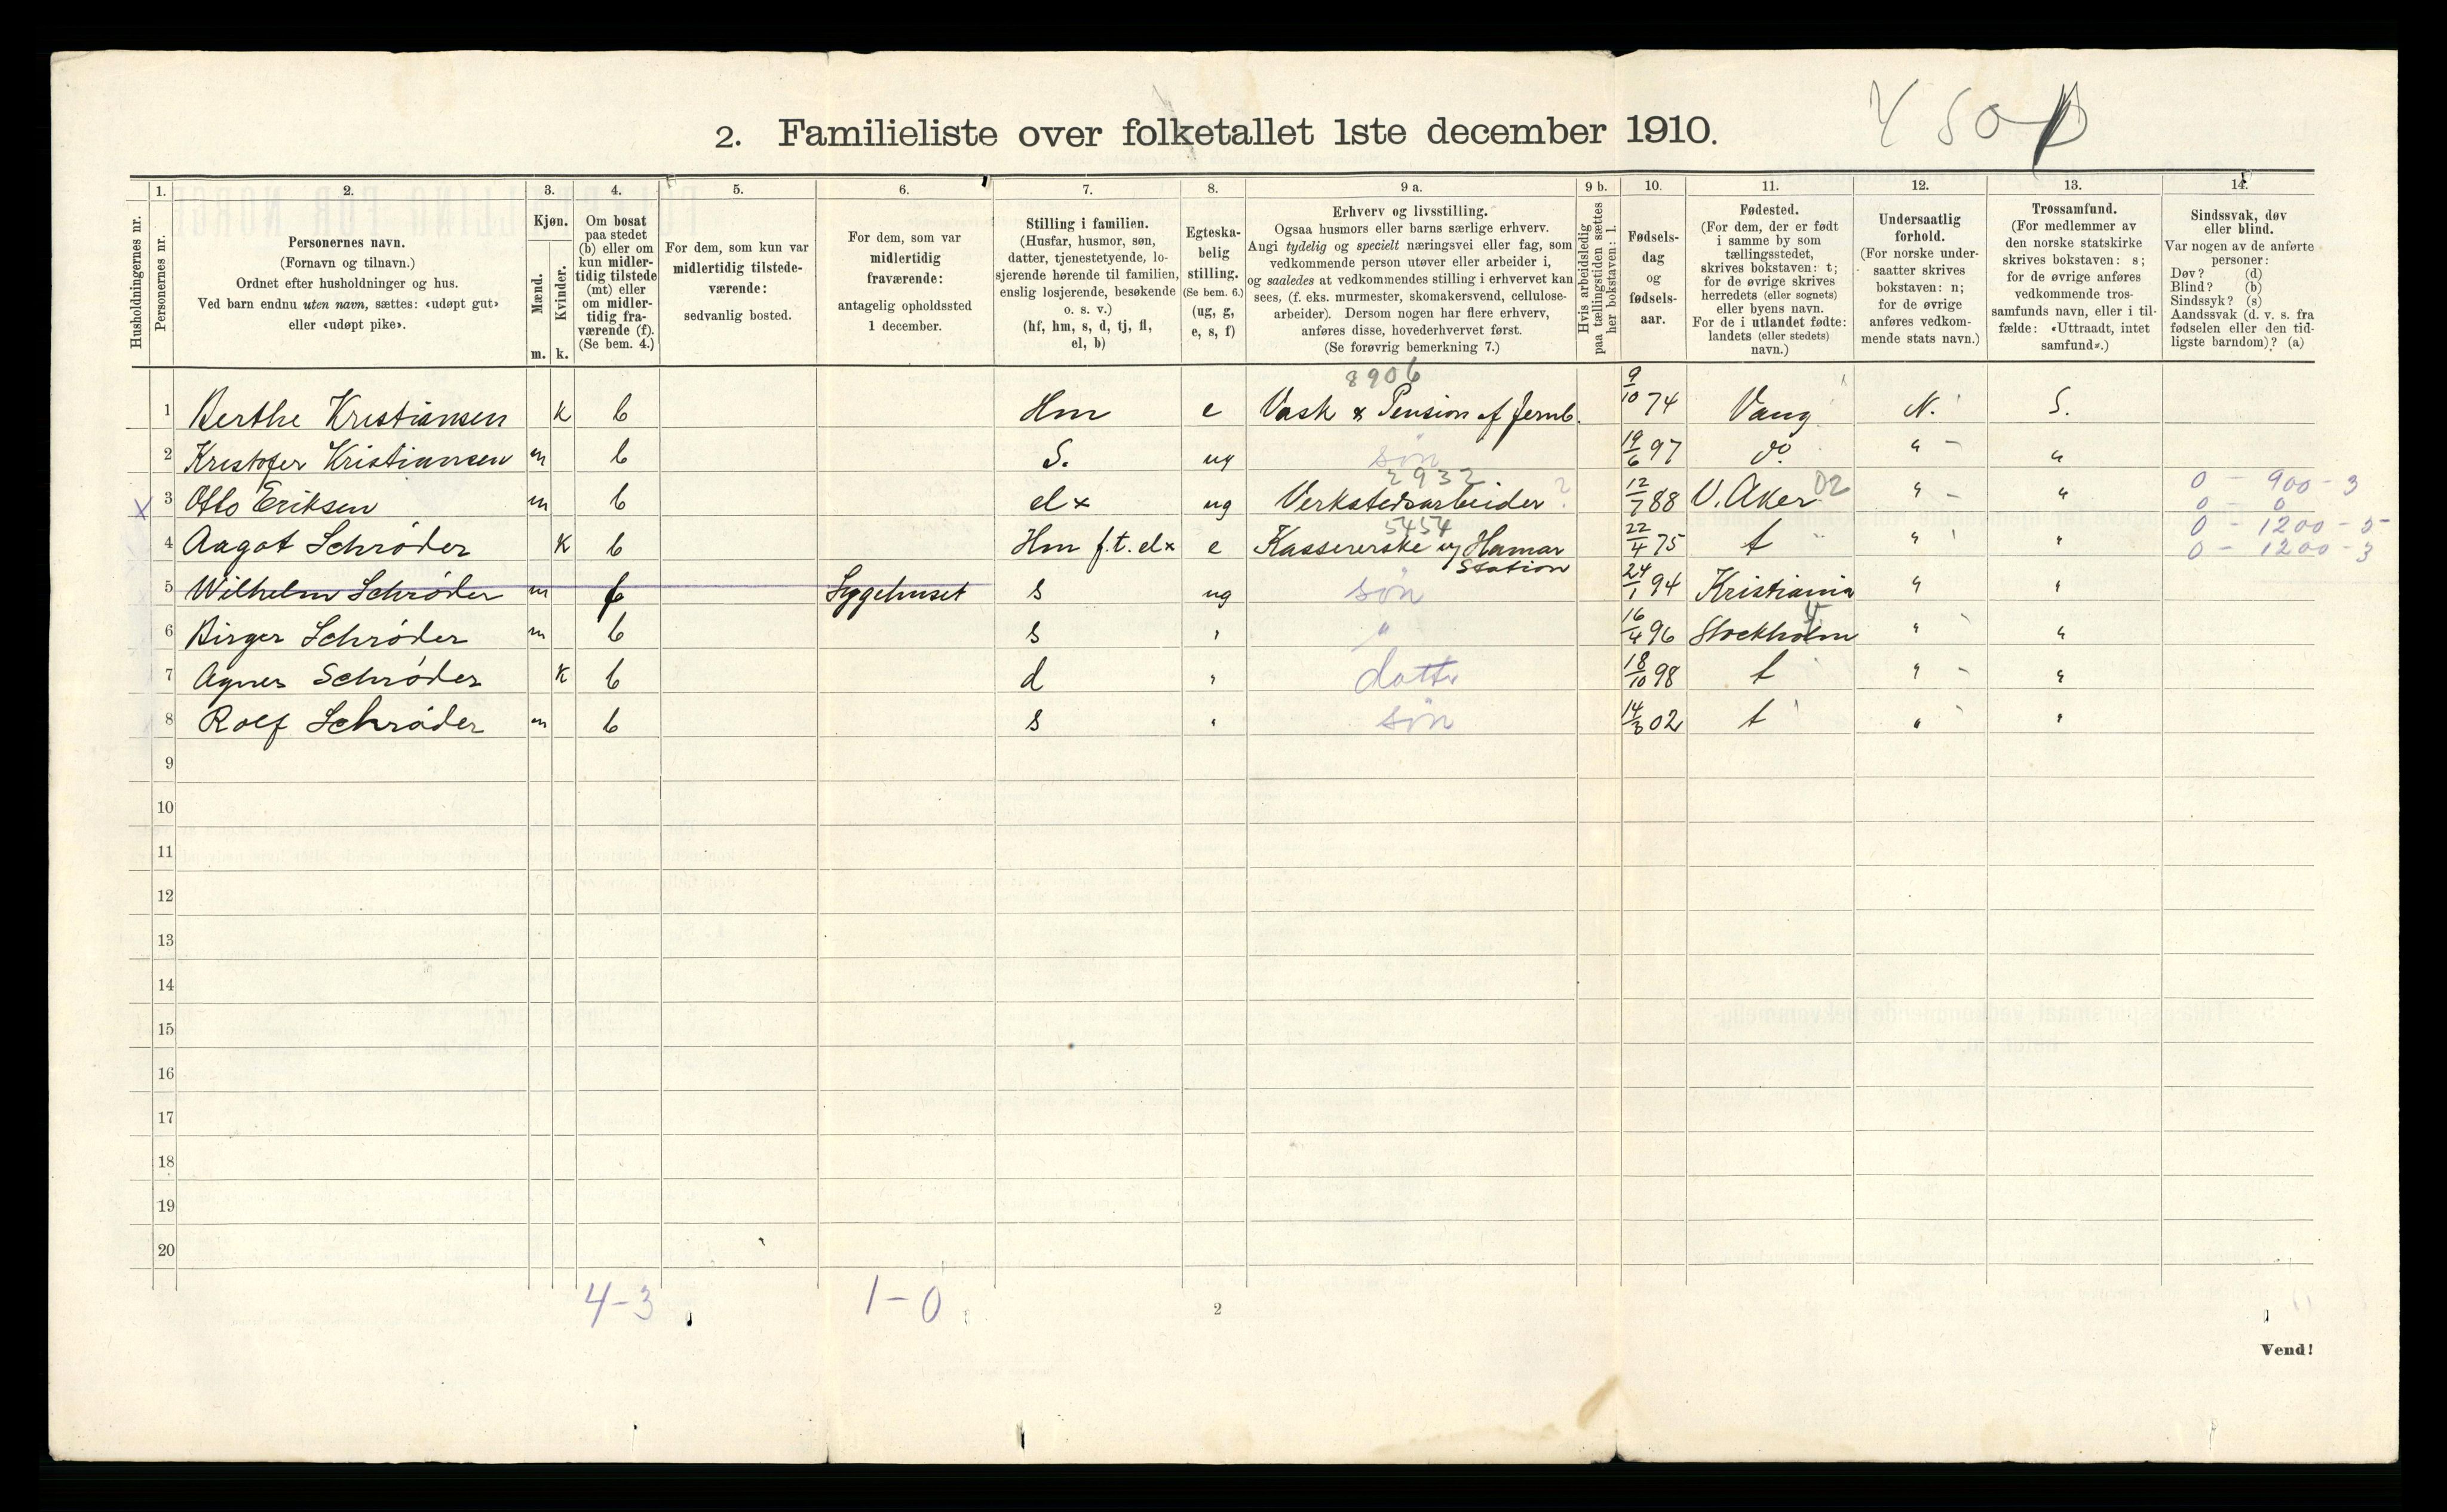 4 50
2. Familieliste over folketallet 1ste december 1910.
Husholdningernes nr.
1.
Personernes nr.
2.
Personernes navn.
(Fornavn og tilnavn.)
Ordnet efter husholdninger og hus.
Ved barn endnu uten navn, sættes: «udøpt gut»
eller «udøpt pike».
3.
Kjøn.
Mænd.
Kvinder.
m. k.
4.
Om bosat
paa stedet
(b) eller om
kun midler-
tidig tilstede
(mt) eller
om midler-
tidig fra-
værende (f).
(Se bem. 4.)
5.
For dem, som kun var
midlertidig tilstede-
værende:
sedvanlig bosted.
6.
For dem, som var
midlertidig
fraværende:
antagelig opholdssted
1 december.
7.
Stilling i familien.
(Husfar, husmor, søn,
datter, tjenestetyende, lo-
sjerende hørende til familien,
enslig losjerende, besøkende
o. s. v.)
(hf, hm, s, d, tj, fl,
el, b)
8.
Egteska-
belig
stilling.
(Se bem. 6.)
(ug, g,
e, s, f)
9 a.
Erhverv og livsstilling.
Ogsaa husmors eller barns særlige erhverv.
Angi tydelig og specielt næringsvei eller fag, som
vedkommende person utøver eller arbeider i,
og saaledes at vedkommendes stilling i erhvervet kan
sees, (f. eks. murmester, skomakersvend, cellulose-
arbeider). Dersom nogen har flere erhverv,
anføres disse, hovederhvervet først.
(Se forøvrig bemerkning 7.)
9 b.
Hvis arbeidsledig
paa tællingstiden sættes
her bokstaven: l.
10.
Fødsels-
dag
og
fødsels-
aar.
11.
Fødested.
(For dem, der er født
i samme by som
tællingsstedet,
skrives bokstaven: t;
for de øvrige skrives
herredets (eller sognets)
eller byens navn.
For de i utlandet fødte:
landets (eller stedets)
navn.)
12.
Undersaatlig
forhold.
(For norske under-
saatter skrives
bokstaven: n;
for de øvrige
anføres vedkom-
mende stats navn.)
13.
Trossamfund.
(For medlemmer av
den norske statskirke
skrives bokstaven: s;
for de øvrige anføres
vedkommende tros-
samfunds navn, eller i til-
fælde: «Uttraadt, intet
samfund».)
14.
Sindssvak, døv
eller blind.
Var nogen av de anførte
personer:
Døv? (d)
Blind? (b)
Sindssyk? (s)
Aandssvak (d. v. s. fra
fødselen eller den tid-
ligste barndom)? (a)
8906
1 Berthe Kristiansen K b Hm e Vask & Pension af Jernb. 9/10 74 Vang N. S.
2 Kristofer Kristiansen m b S. ug søn 19/6 97 do " - "
2932
X 3 Otto Eriksen m b el x ug Verkstedsarbeider ? 12/7 88 V. Aker 02 " - " 0 - 900 - 3
0 - 0
5454
4 Aagot Schrøder K b Hm f.t. el x e Kassererske v/ Hamar Station 22/4 75 t " " 0 - 1200 - 5
0 - 1200 - 3
5 Wilhelm Schrøder m f Sygehuset s ug søn 24/1 94 Kristiania " "
6 Birger Schrøder m b s " " 16/4 96 Stockholm " "
7 Agnes Schrøder K b d " datter 18/10 98 t " - "
8 Rolf Schrøder m b s " søn 14/3 02 t " "
9
10
11
12
13
14
15
16
17
18
19
20
4-3 1-0
2
Vend!